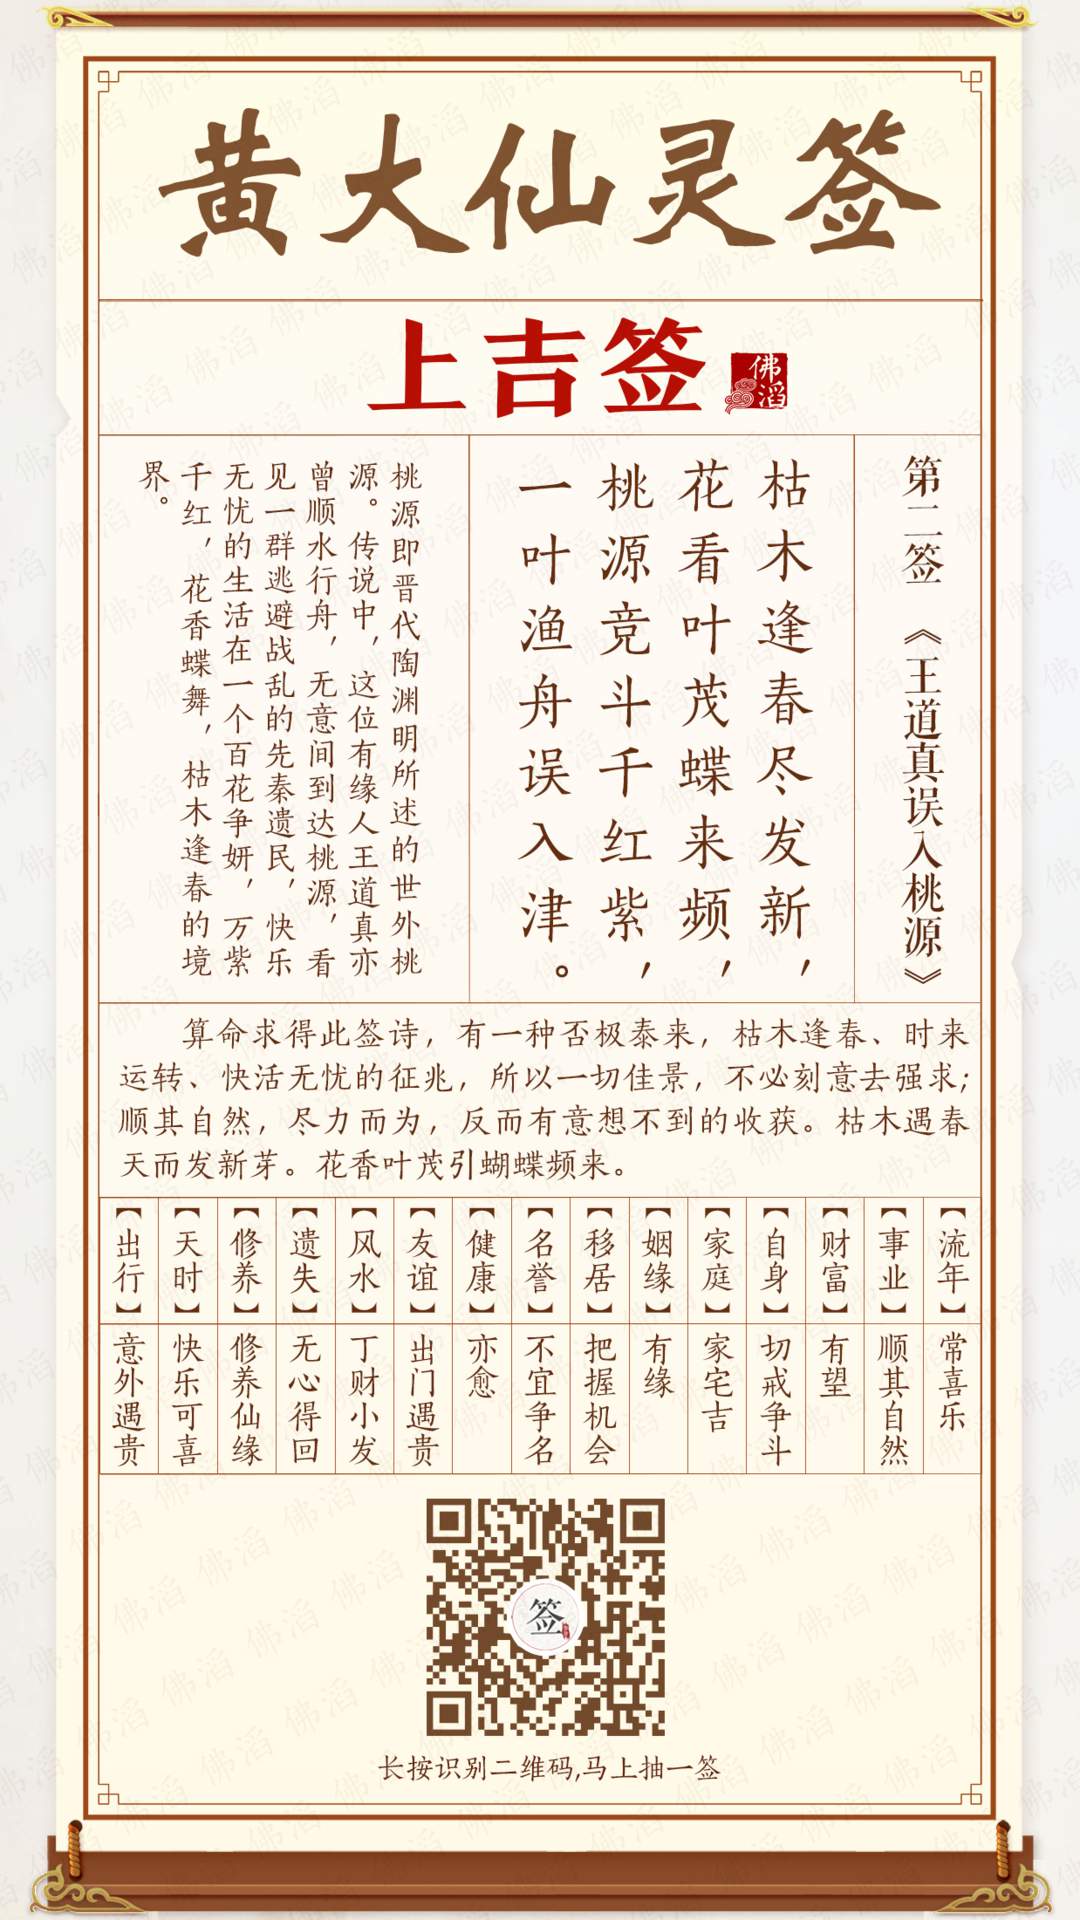 黄大仙灵签
上吉签
佛滔
第二签 《王道真误入桃源》
枯木逢春尽发新，
花看叶茂蝶来频，
桃源竞斗千红紫，
一叶渔舟误入津。
桃源即晋代陶渊明所述的世外桃
源。传说中，这位有缘人王道真亦
曾顺水行舟，无意间到达桃源，看
见一群逃避战乱的先秦遗民，快乐
无忧的生活在一个百花争妍，万紫
千红，花香蝶舞，枯木逢春的境
界。
算命求得此签诗，有一种否极泰来，枯木逢春、时来
运转、快活无忧的征兆，所以一切佳景，不必刻意去强求；
顺其自然，尽力而为，反而有意想不到的收获。枯木遇春
天而发新芽。花香叶茂引蝴蝶频来。
【流年】常喜乐
【事业】顺其自然
【财富】有望
【自身】切戒争斗
【家庭】家宅吉
【姻缘】有缘
【移居】把握机会
【名誉】不宜争名
【健康】亦愈
【友谊】出门遇贵
【风水】丁财小发
【遗失】无心得回
【修养】修养仙缘
【天时】快乐可喜
【出行】意外遇贵
签
长按识别二维码,马上抽一签